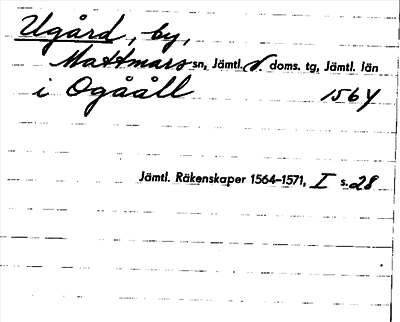 Ugård, by,
Mattmars sn, Jämtl. V. doms. tg, Jämtl. län
i Ogååll 1564
Jämtl. Räkenskaper 1564–1571, I s. 28